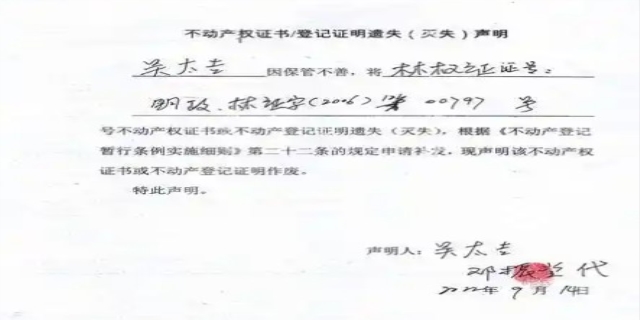 不动产权证书/登记证明遗失（灭失）声明
吴太吉 因保管不善，将 林权证证号：
明政林证字(2006)第00797 号
号不动产权证书或不动产登记证明遗失（灭失），根据《不动产登记
暂行条例实施细则》第二十二条的规定申请补发，现声明该不动产权
证书或不动产登记证明作废。
特此声明。
声明人：吴太吉
邓振 代
2022年9月14日